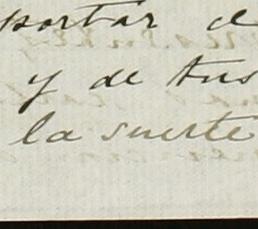 portar e
y de tus
la suerte